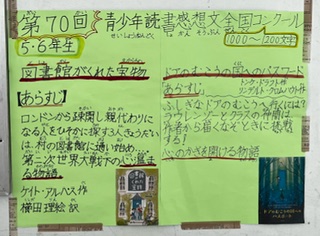 第70回 青少年読書感想文全国コンクール
せいしょうねんどくしょかんそうぶんぜんこく
5・6年生
1000〜1200文字
図書館がくれた宝物
【あらすじ】
ロンドンから疎開し、親代わりに
なる人をひそかに探す3人きょうだい
は、村の図書館に通い始め…
第二次世界大戦下の心温まる
物語
ケイト・アルバス作
櫛田理絵 訳
ドアのむこうの国へのパスワード
トンケ・ドラフト
リンデルト・クロムハウト作
【あらすじ】
ふしぎなドアのむこうへ行くには?
ラウレンゾーとクラスの仲間は、
作者から届くなぞときに挑戦
する!
心のかぎを開ける物語